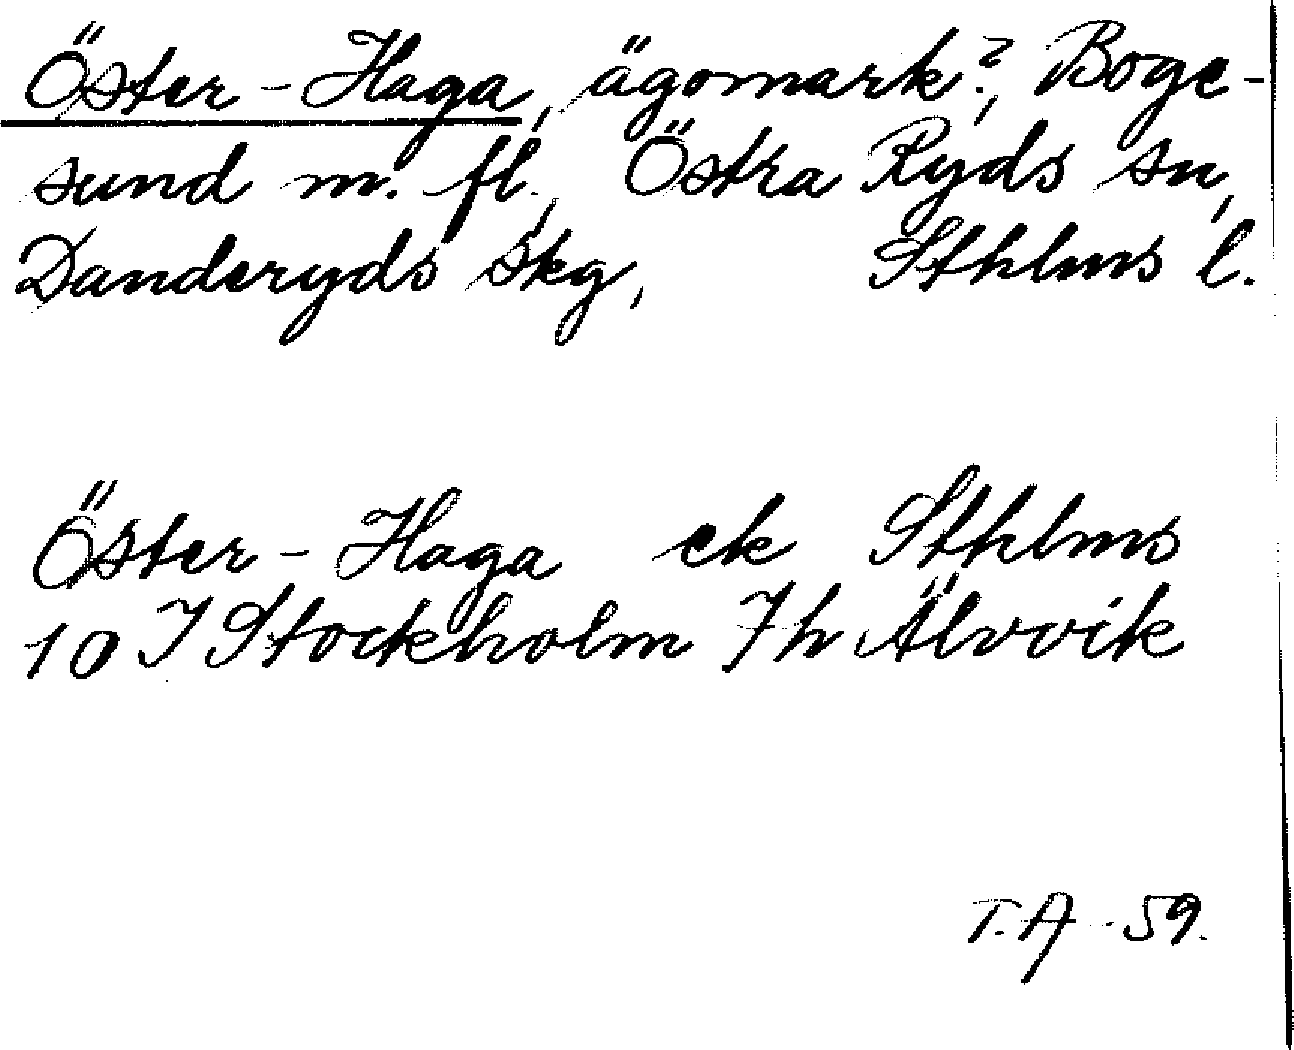 Öster-Haga, ägomark?, Boge-
sund m. fl., Östra Ryds sn,
Danderyds skg, Sthlms l.
Öster-Haga ek Sthlms
10 I Stockholm 7h Älvvik
T.A -59.